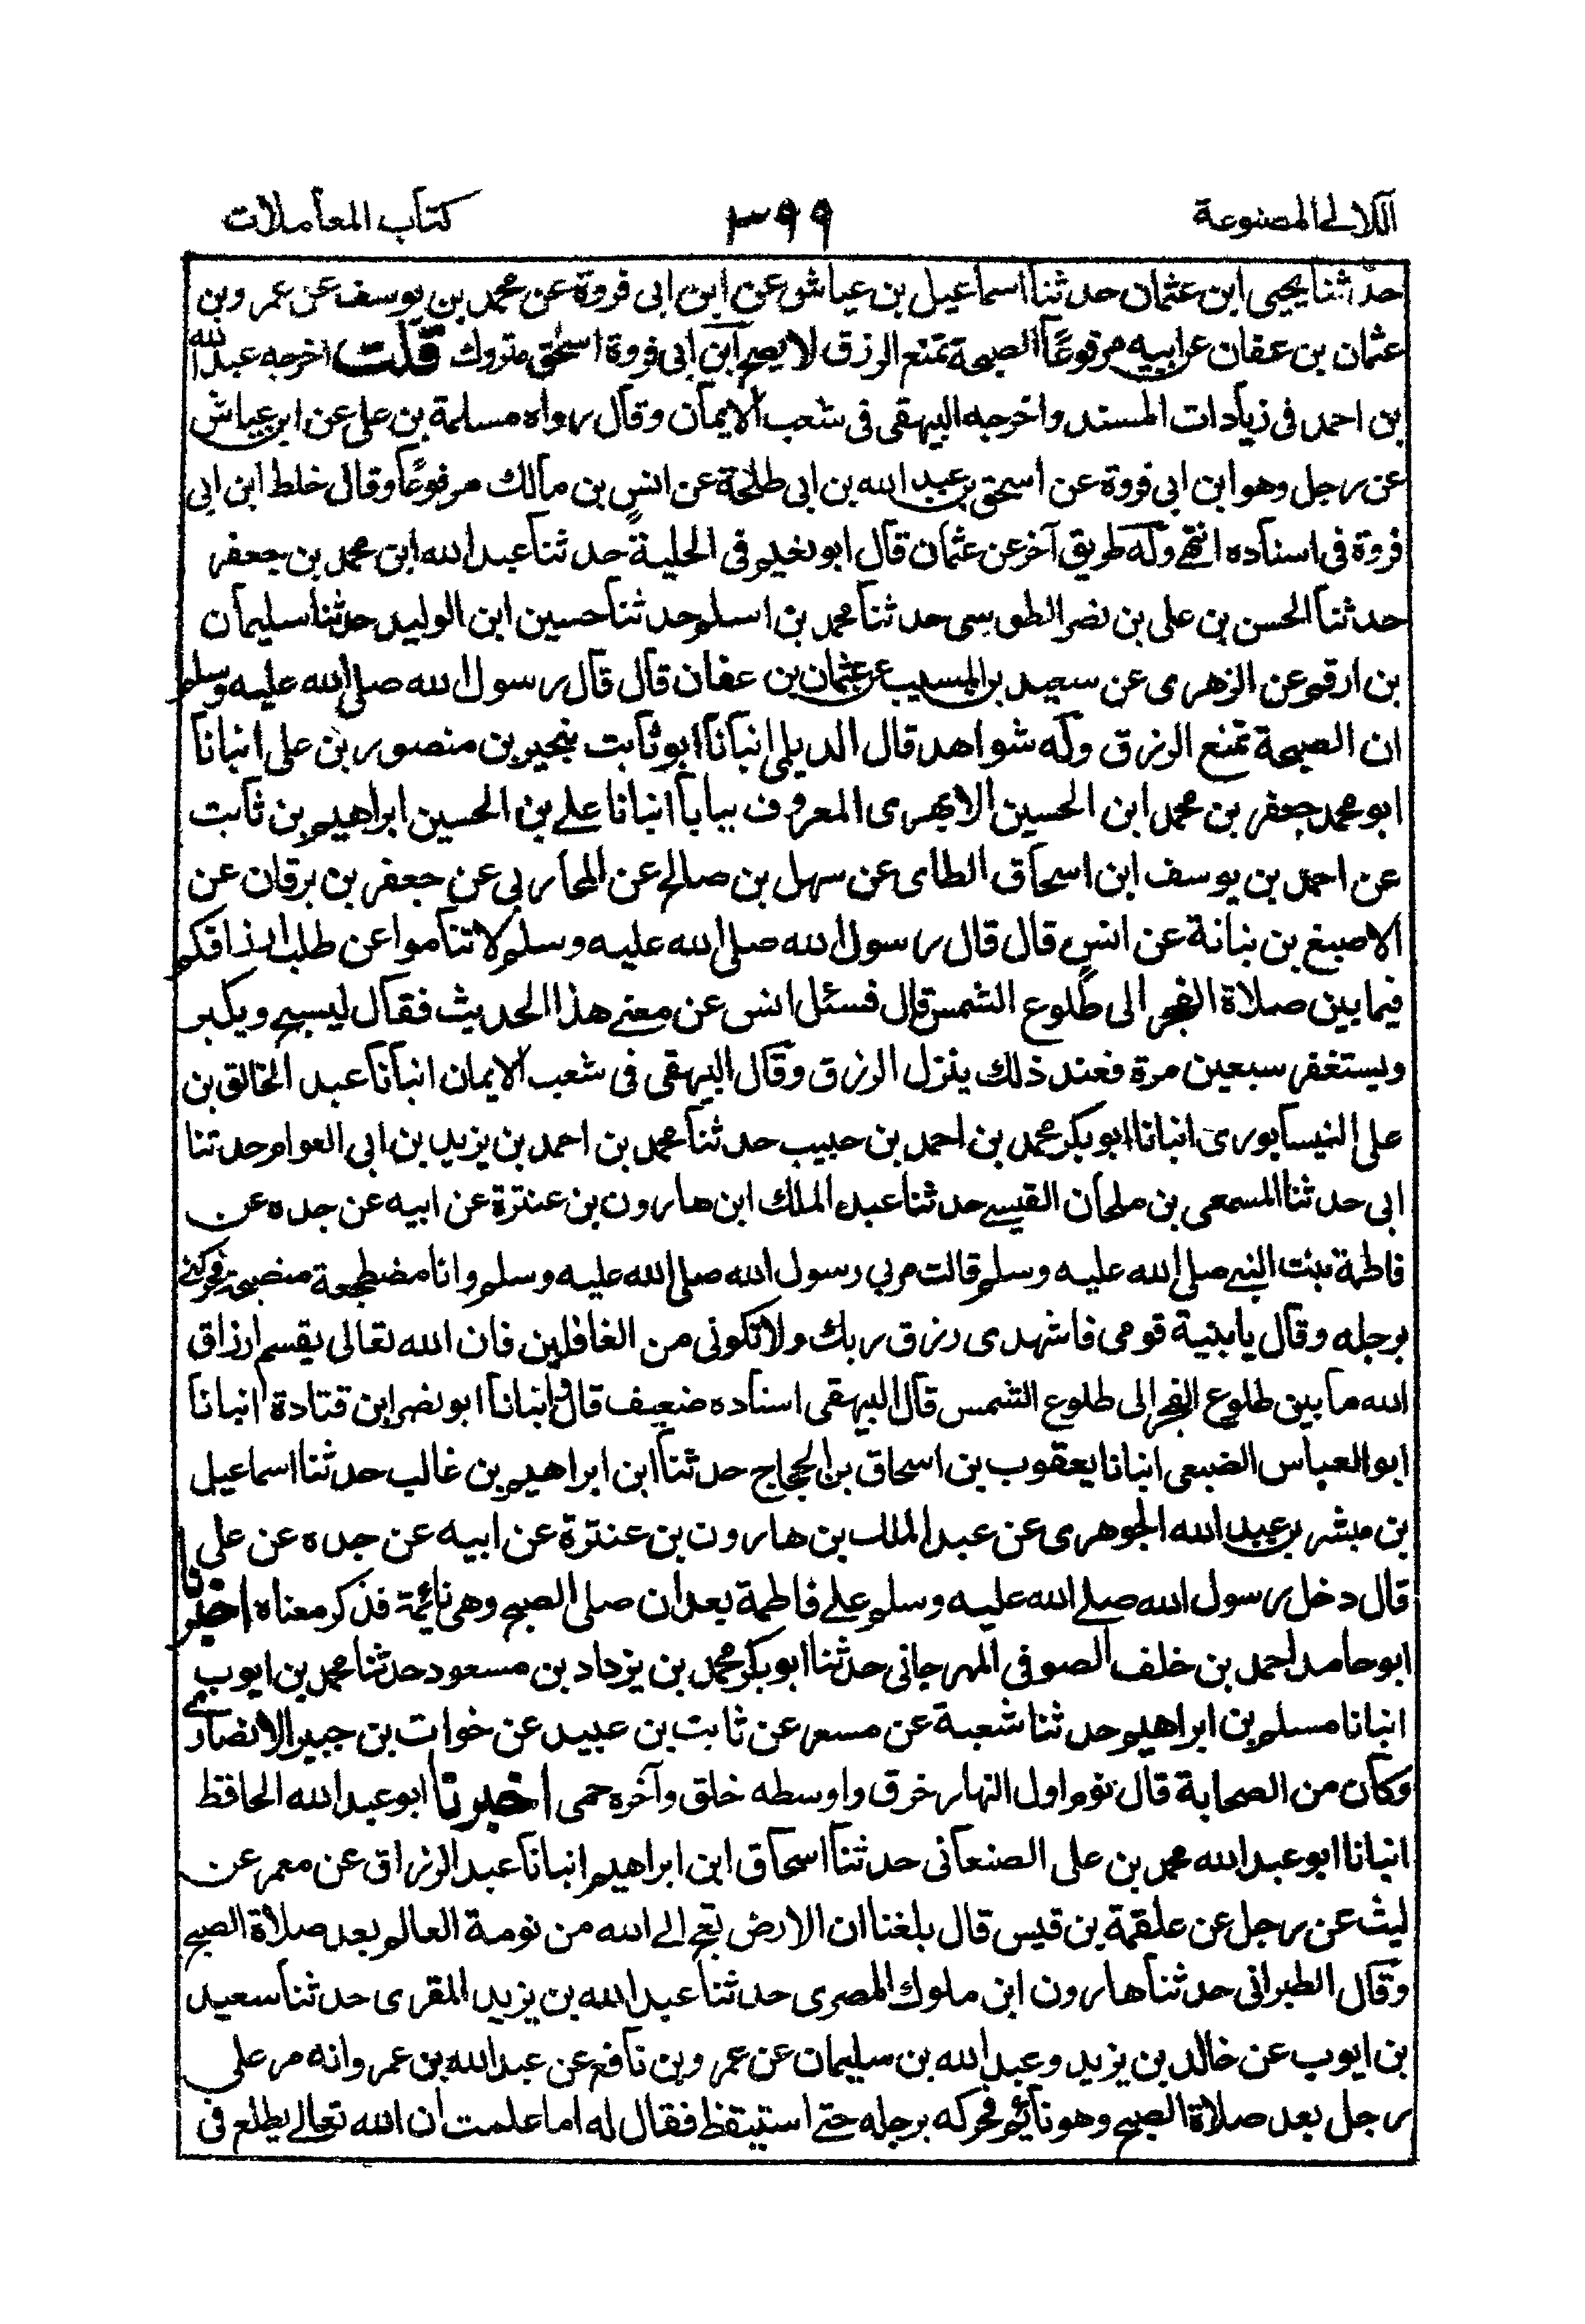 اللآلي المصنوعة
٣٩٩
كتاب المعاملات
حدثنا يحيى ابن عثمان حدثنا اسماعيل بن عياش عن ابن ابى فروة عن محمد بن يوسف عن عمرو بن
عثمان بن عفان عن ابيه مرفوعًا الصبحة تمنع الرزق لا يصح ابن ابى فروة اسحق متروك قلت اخرجه عبد الله
بن احمد فى زيادات المسند واخرجه البيهقى فى شعب الايمان وقال رواه مسلمة بن على عن ابن عياش
عن رجل وهو ابن ابى فروة عن اسحق بن عبد الله بن ابى طلحة عن انس بن مالك مرفوعًا وقال خلط ابن ابى
فروة فى اسناده انتهى وله طريق آخر عن عثمان قال ابو نعيم فى الحلية حدثنا عبد الله ابن محمد بن جعفر
حدثنا الحسن بن على بن نصر الطوسى حدثنا محمد بن اسلم حدثنا حسين ابن الوليد حدثنا سليمان
بن ارقم عن الزهرى عن سعيد بن المسيب عن عثمان بن عفان قال قال رسول الله صلى الله عليه وسلم
ان الصبحة تمنع الرزق وله شواهد قال الديلمى انبانا ابو ثابت بنجير بن منصور بن على انبانا
ابو محمد جعفر بن محمد ابن الحسين الابهرى المعروف ببابا انبانا على بن الحسين ابراهيم بن ثابت
عن احمد بن يوسف ابن اسحاق الطاى عن سهل بن صالح عن المحاربى عن جعفر بن برقان عن
الاصبغ بن نباتة عن انس قال قال رسول الله صلى الله عليه وسلم لا تناموا عن طلب ارزاقكم
فيما بين صلاة الفجر الى طلوع الشمس قال فسئل انس عن معنى هذا الحديث فقال ليسبح ويكبر
ويستغفر سبعين مرة فعند ذلك ينزل الرزق وقال البيهقى فى شعب الايمان انبانا عبد الخالق بن
على النيسابورى انبانا ابو بكر محمد بن احمد بن حبيب حدثنا محمد بن احمد بن يزيد بن ابى العوام حدثنا
ابى حدثنا المسمعى بن ملحان القيسى حدثنا عبد الملك ابن هارون بن عنترة عن ابيه عن جده عن
فاطمة بنت النبى صلى الله عليه وسلم قالت مر بى رسول الله صلى الله عليه وسلم وانا مضطجعة متصبحة فحركنى
برجله وقال يا بنية قومى فاشهدى رزق ربك ولا تكونى من الغافلين فان الله تعالى يقسم ارزاق
الله ما بين طلوع الفجر الى طلوع الشمس قال البيهقى اسناده ضعيف قال انبانا ابو نصر ابن قتادة انبانا
ابو العباس الضبعى انبانا يعقوب بن اسحاق بن الحجاج حدثنا ابن ابراهيم بن غالب حدثنا اسماعيل
بن مبشر بن عبد الله الجوهرى عن عبد الملك بن هارون بن عنترة عن ابيه عن جده عن على
قال دخل رسول الله صلى الله عليه وسلم على فاطمة بعد ان صلى الصبح وهى نائمة فذكر معناه اخبرنا
ابو حامد احمد بن خلف الصوفى المهرجانى حدثنا ابو بكر محمد بن يزداد بن مسعود حدثنا محمد بن ايوب
انبانا مسلم بن ابراهيم حدثنا شعبة عن مسعر عن ثابت بن عبيد عن خوات بن جبير الانصارى
وكان من الصحابة قال نوم اول النهار خرق واوسطه خلق وآخره حمى اخبرنا ابو عبد الله الحافظ
انبانا ابو عبد الله محمد بن على الصنعانى حدثنا اسحاق ابن ابراهيم انبانا عبد الرزاق عن معمر عن
ليث عن رجل عن علقمة بن قيس قال بلغنا ان الارض تعج الى الله من نومة العالم بعد صلاة الصبح
وقال الطبرانى حدثنا هارون ابن ملوك المصرى حدثنا عبد الله بن يزيد المقرى حدثنا سعيد
بن ايوب عن خالد بن يزيد وعبد الله بن سليمان عن عمرو بن نافع عن عبد الله بن عمرو انه مر على
رجل بعد صلاة الصبح وهو نائم فحركه برجله حتى استيقظ فقال له اما علمت ان الله تعالى يطلع فى